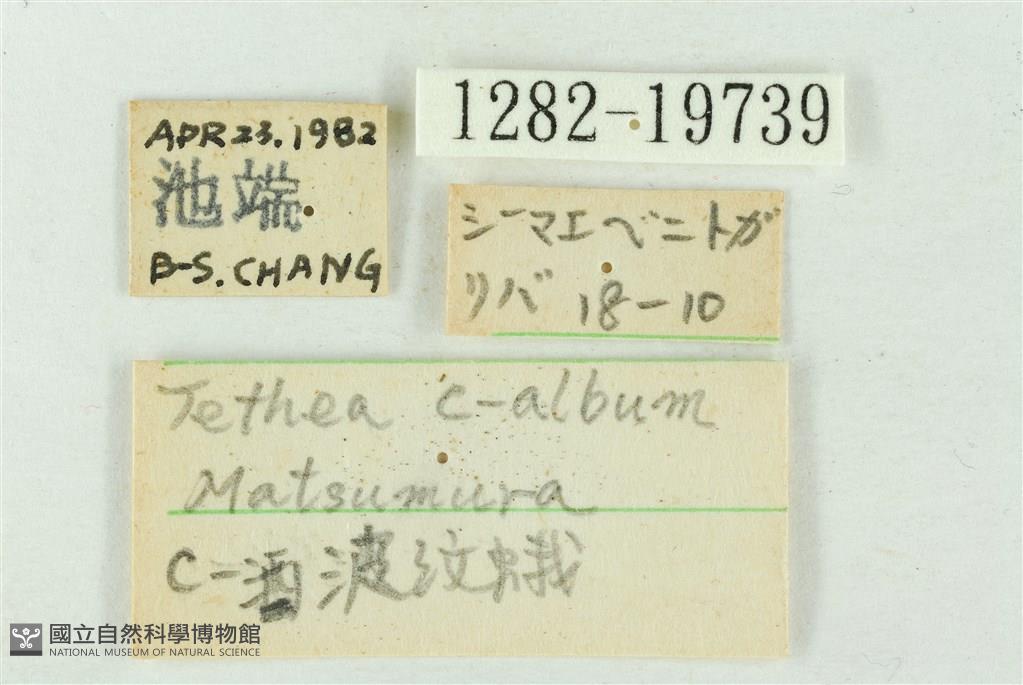 1282-19739
APR 23. 1982
池端
B-S. CHANG
シーマエベニトガ
リバ 18-10
Tethea c-album
Matsumura
C-酒波紋蛾
國立自然科學博物館
NATIONAL MUSEUM OF NATURAL SCIENCE